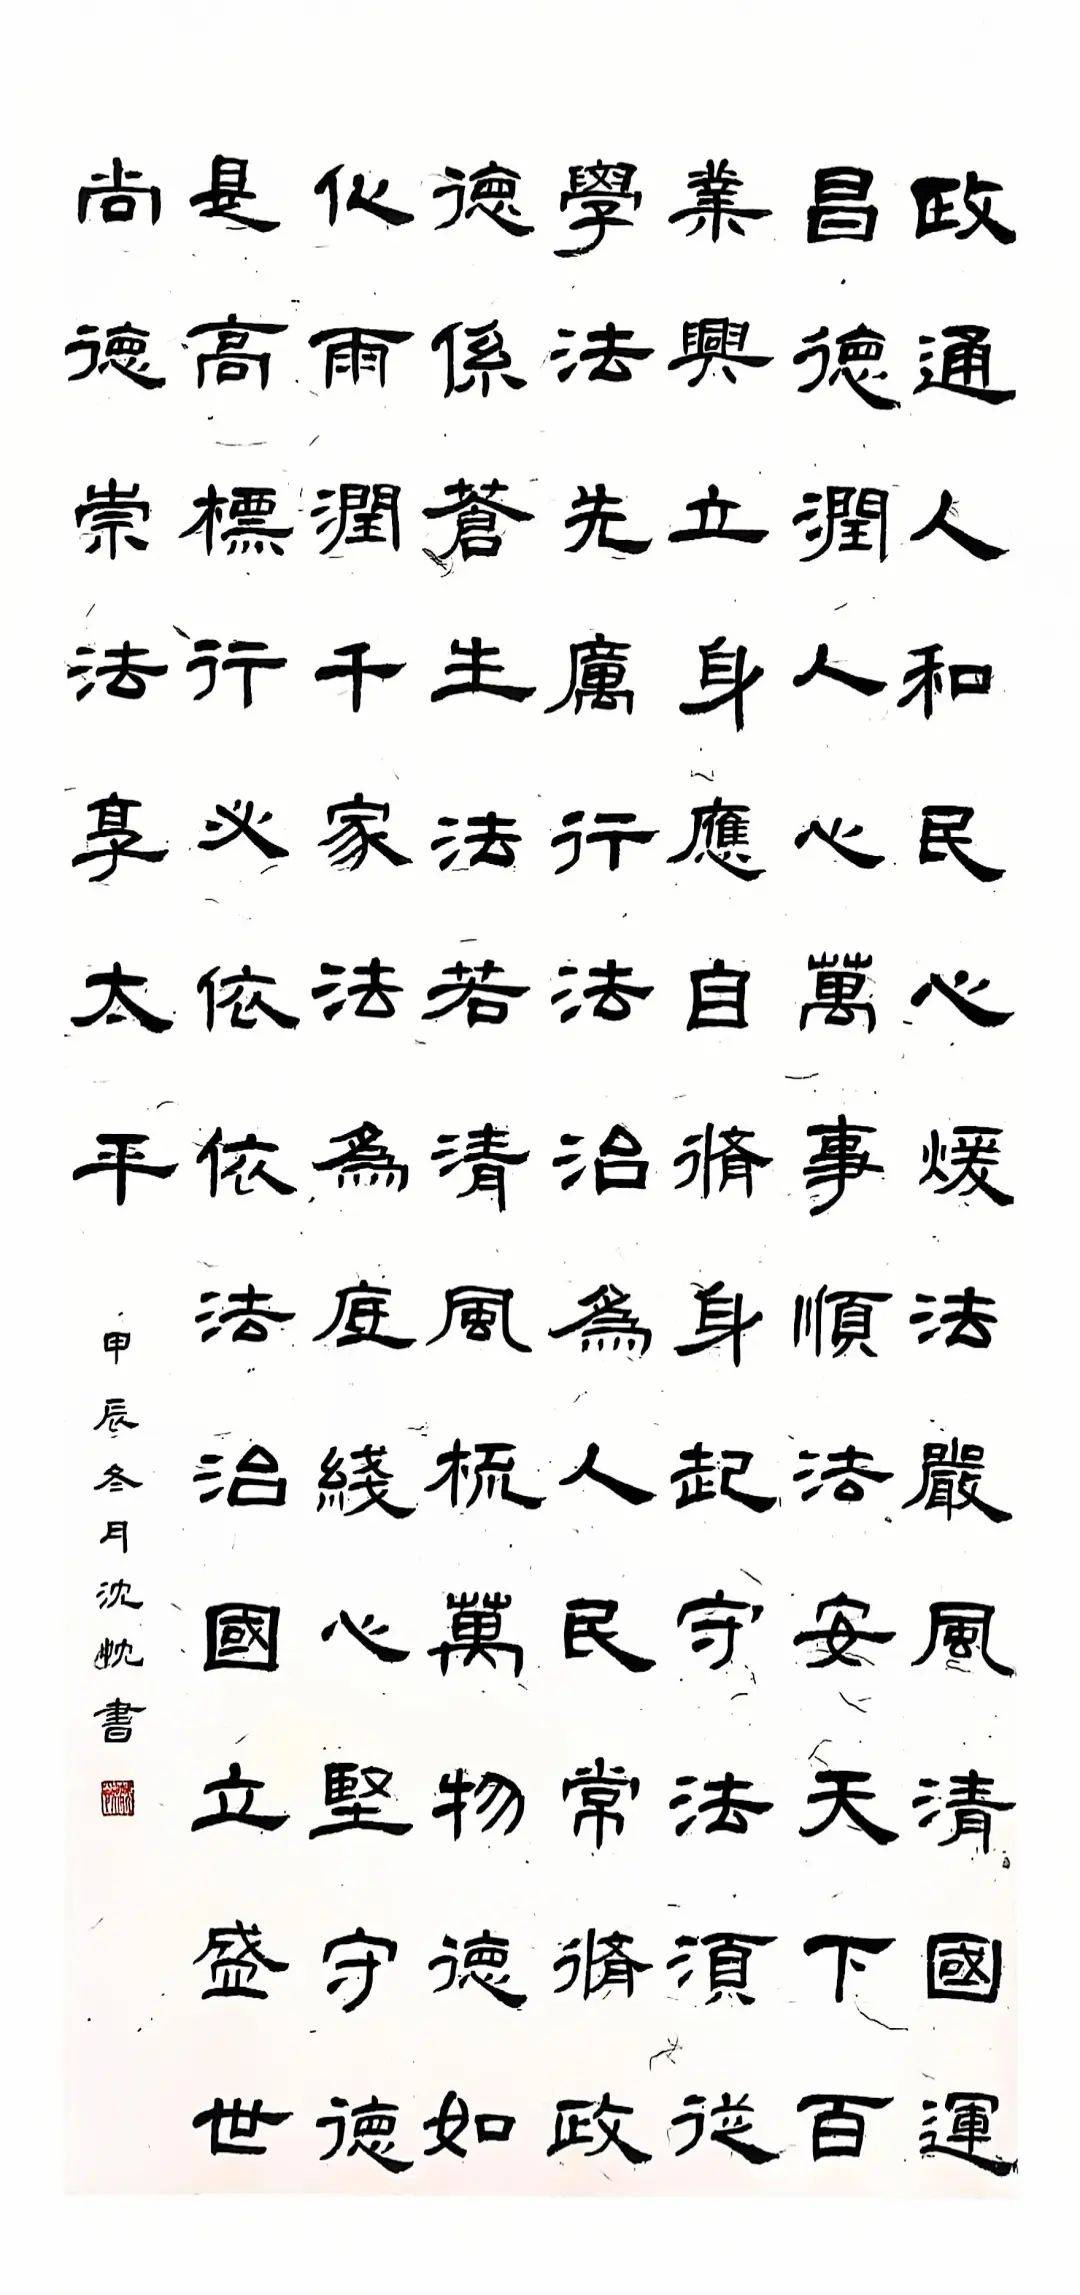 政通人和民心煖法嚴風清國運
昌德潤人心萬事順法安天下百
業興立身應自脩身起守法須從
學法先厲行法治爲人民常脩政
德係蒼生法若清風梳萬物德如
化雨潤千家法爲底綫心堅守德
是高標行必依依法治國立盛世
尚德崇法享太平
甲辰冬月沈書